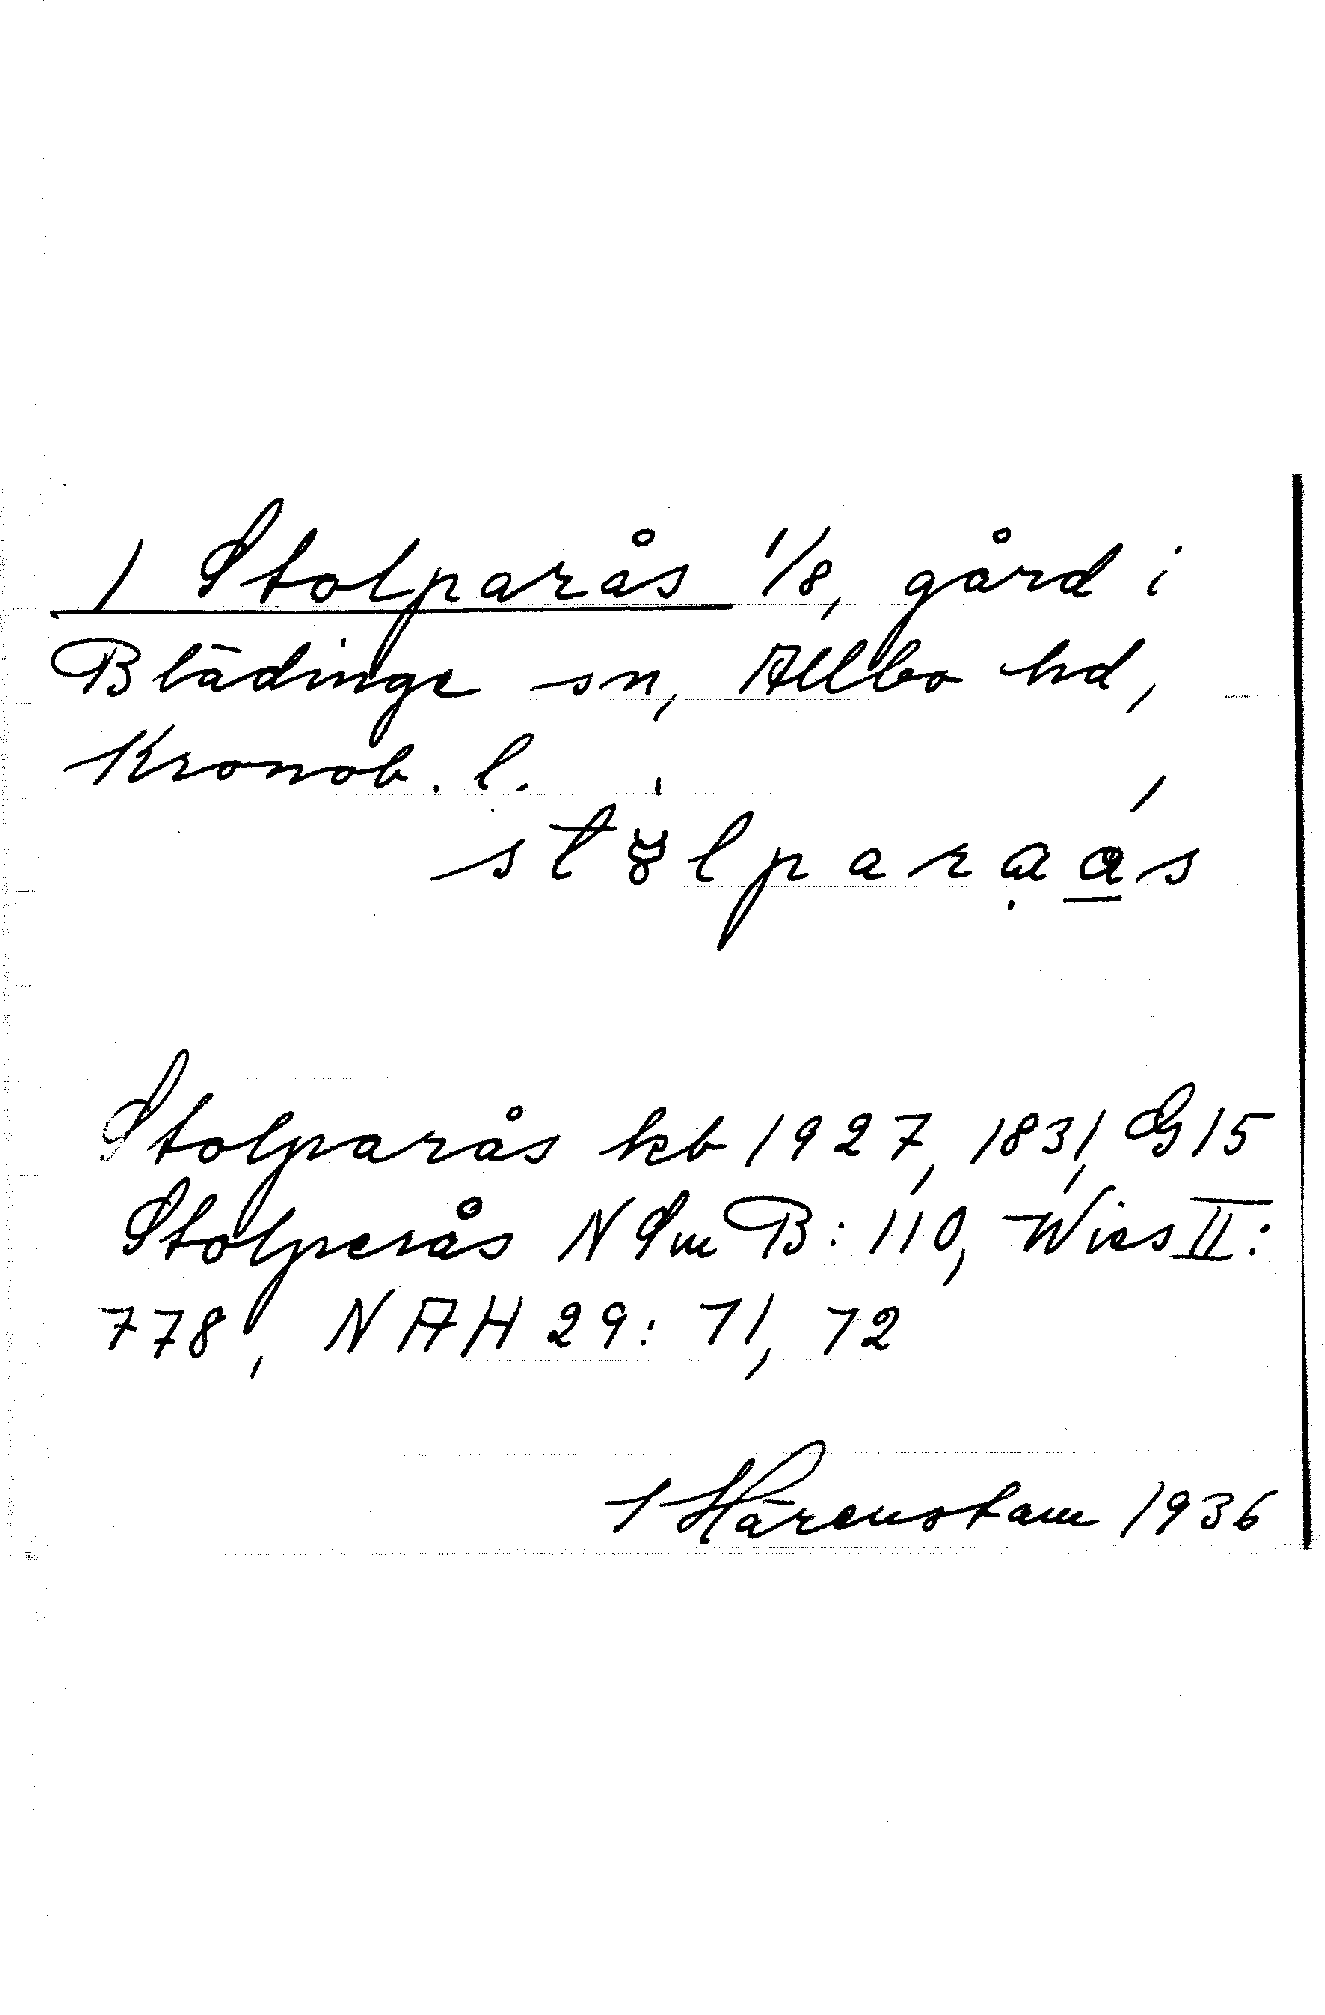 1 Stolparås 1/8, gård i
Blädinge sn, Allbo hd,
Kronob. l.
Stolparås kb 1927, 1831, G15
Stolperås NSmB: 110, Wies II:
778, NAH 29: 71, 72
I Härenstam 1936